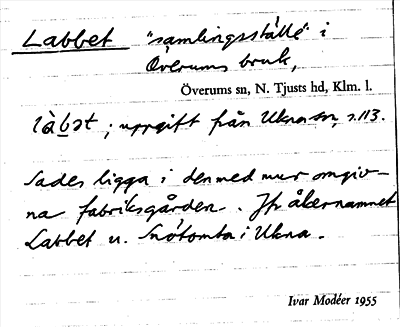 Labbet "samlingsställe" i
Överums bruk,
Överums sn, N. Tjusts hd, Klm. l.
làbət ; uppgift från Ukna sn, s. 113.
Sades ligga i den med mur omgiv-
na fabriksgården. Jfr åkernamnet
Labbet u. Snötomta i Ukna.
Ivar Modéer 1955